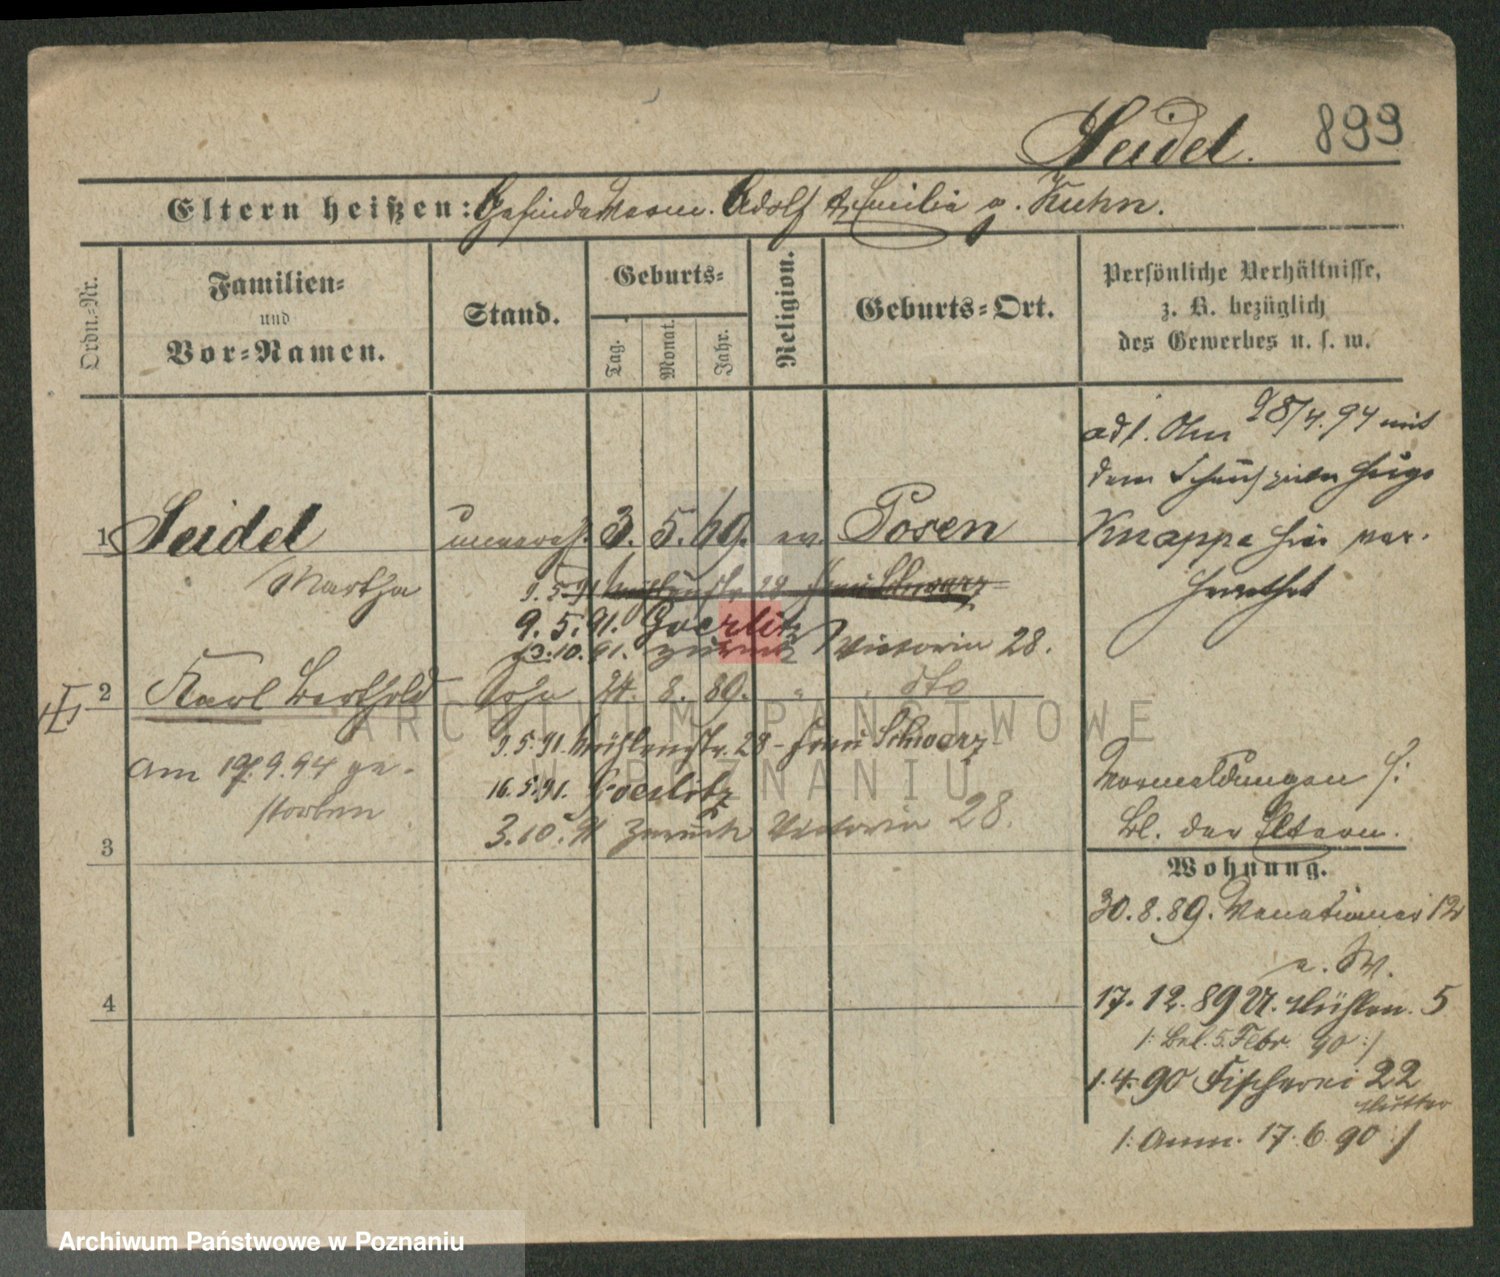 Seidel. 899
Eltern heißen: Adolf & Emilie g. Kuhn.
Ordn.-Nr.
Familien-
und
Vor-Namen.
Stand.
Geburts-
Tag.
Monat.
Jahr.
Religion.
Geburts-Ort.
Persönliche Verhältnisse,
z. B. bezüglich
des Gewerbes u. s. w.
ad 1. Am 28/4.94 mit
dem Schauspieler Hugo
Knappe hier ver-
heirathet
1 Seidel unvereh. 3. 5. 69. ev. Posen
Martha
9.5.91 Mühlenstr. 28 Frau Schwarz
9.5.91. Goerlitz
3.10.91. zurück Victoria 28.
2 Karl Berthold Sohn 24. 8. 89. " dto
9.5.91. Mühlenstr. 28 - Frau Schwarz
am 17.9.94 ge-
storben
16.5.91. Goerlitz
3.10.91 zurück Victoria 28.
Vormeldungen s:
Bl. der Eltern.
3
Wohnung.
30.8.89. 12
17.12.89 U. Mühlen. 5
1. Bel. 5. Febr. 90 :/
4
1.4.90 Fischerei 22
Mutter
/: Anm. 17.6.90 :/
ARCHIWUM PAŃSTWOWE
W POZNANIU
Archiwum Państwowe w Poznaniu